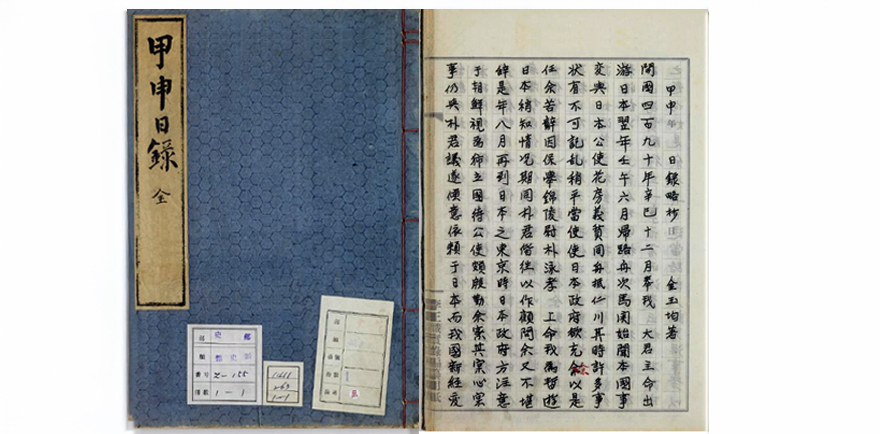 甲申日錄 全
史部
2-155
1-1
263
1-1
甲申 日錄略抄 金玉均著
開國四百九十年辛巳十二月奉我 大君主命出
游日本翌年壬午六月歸路舟次馬関始聞本國事
変與日本公使花房義質同舟抵仁川其時許多事
状有不可記乱稍平當使使日本政府欲充余以是
任余苦辭因保擧錦陵尉朴泳孝 上命我爲暫遊
日本稍知情况期同朴君偕往以作顧問余又不堪
辞是年八月再到日本之東京時日本政府方注意
于朝鮮視爲獨立國待公使頗殷勤余察其実心実
事仍與朴君議遂傾意依頼于日本而我國新經変